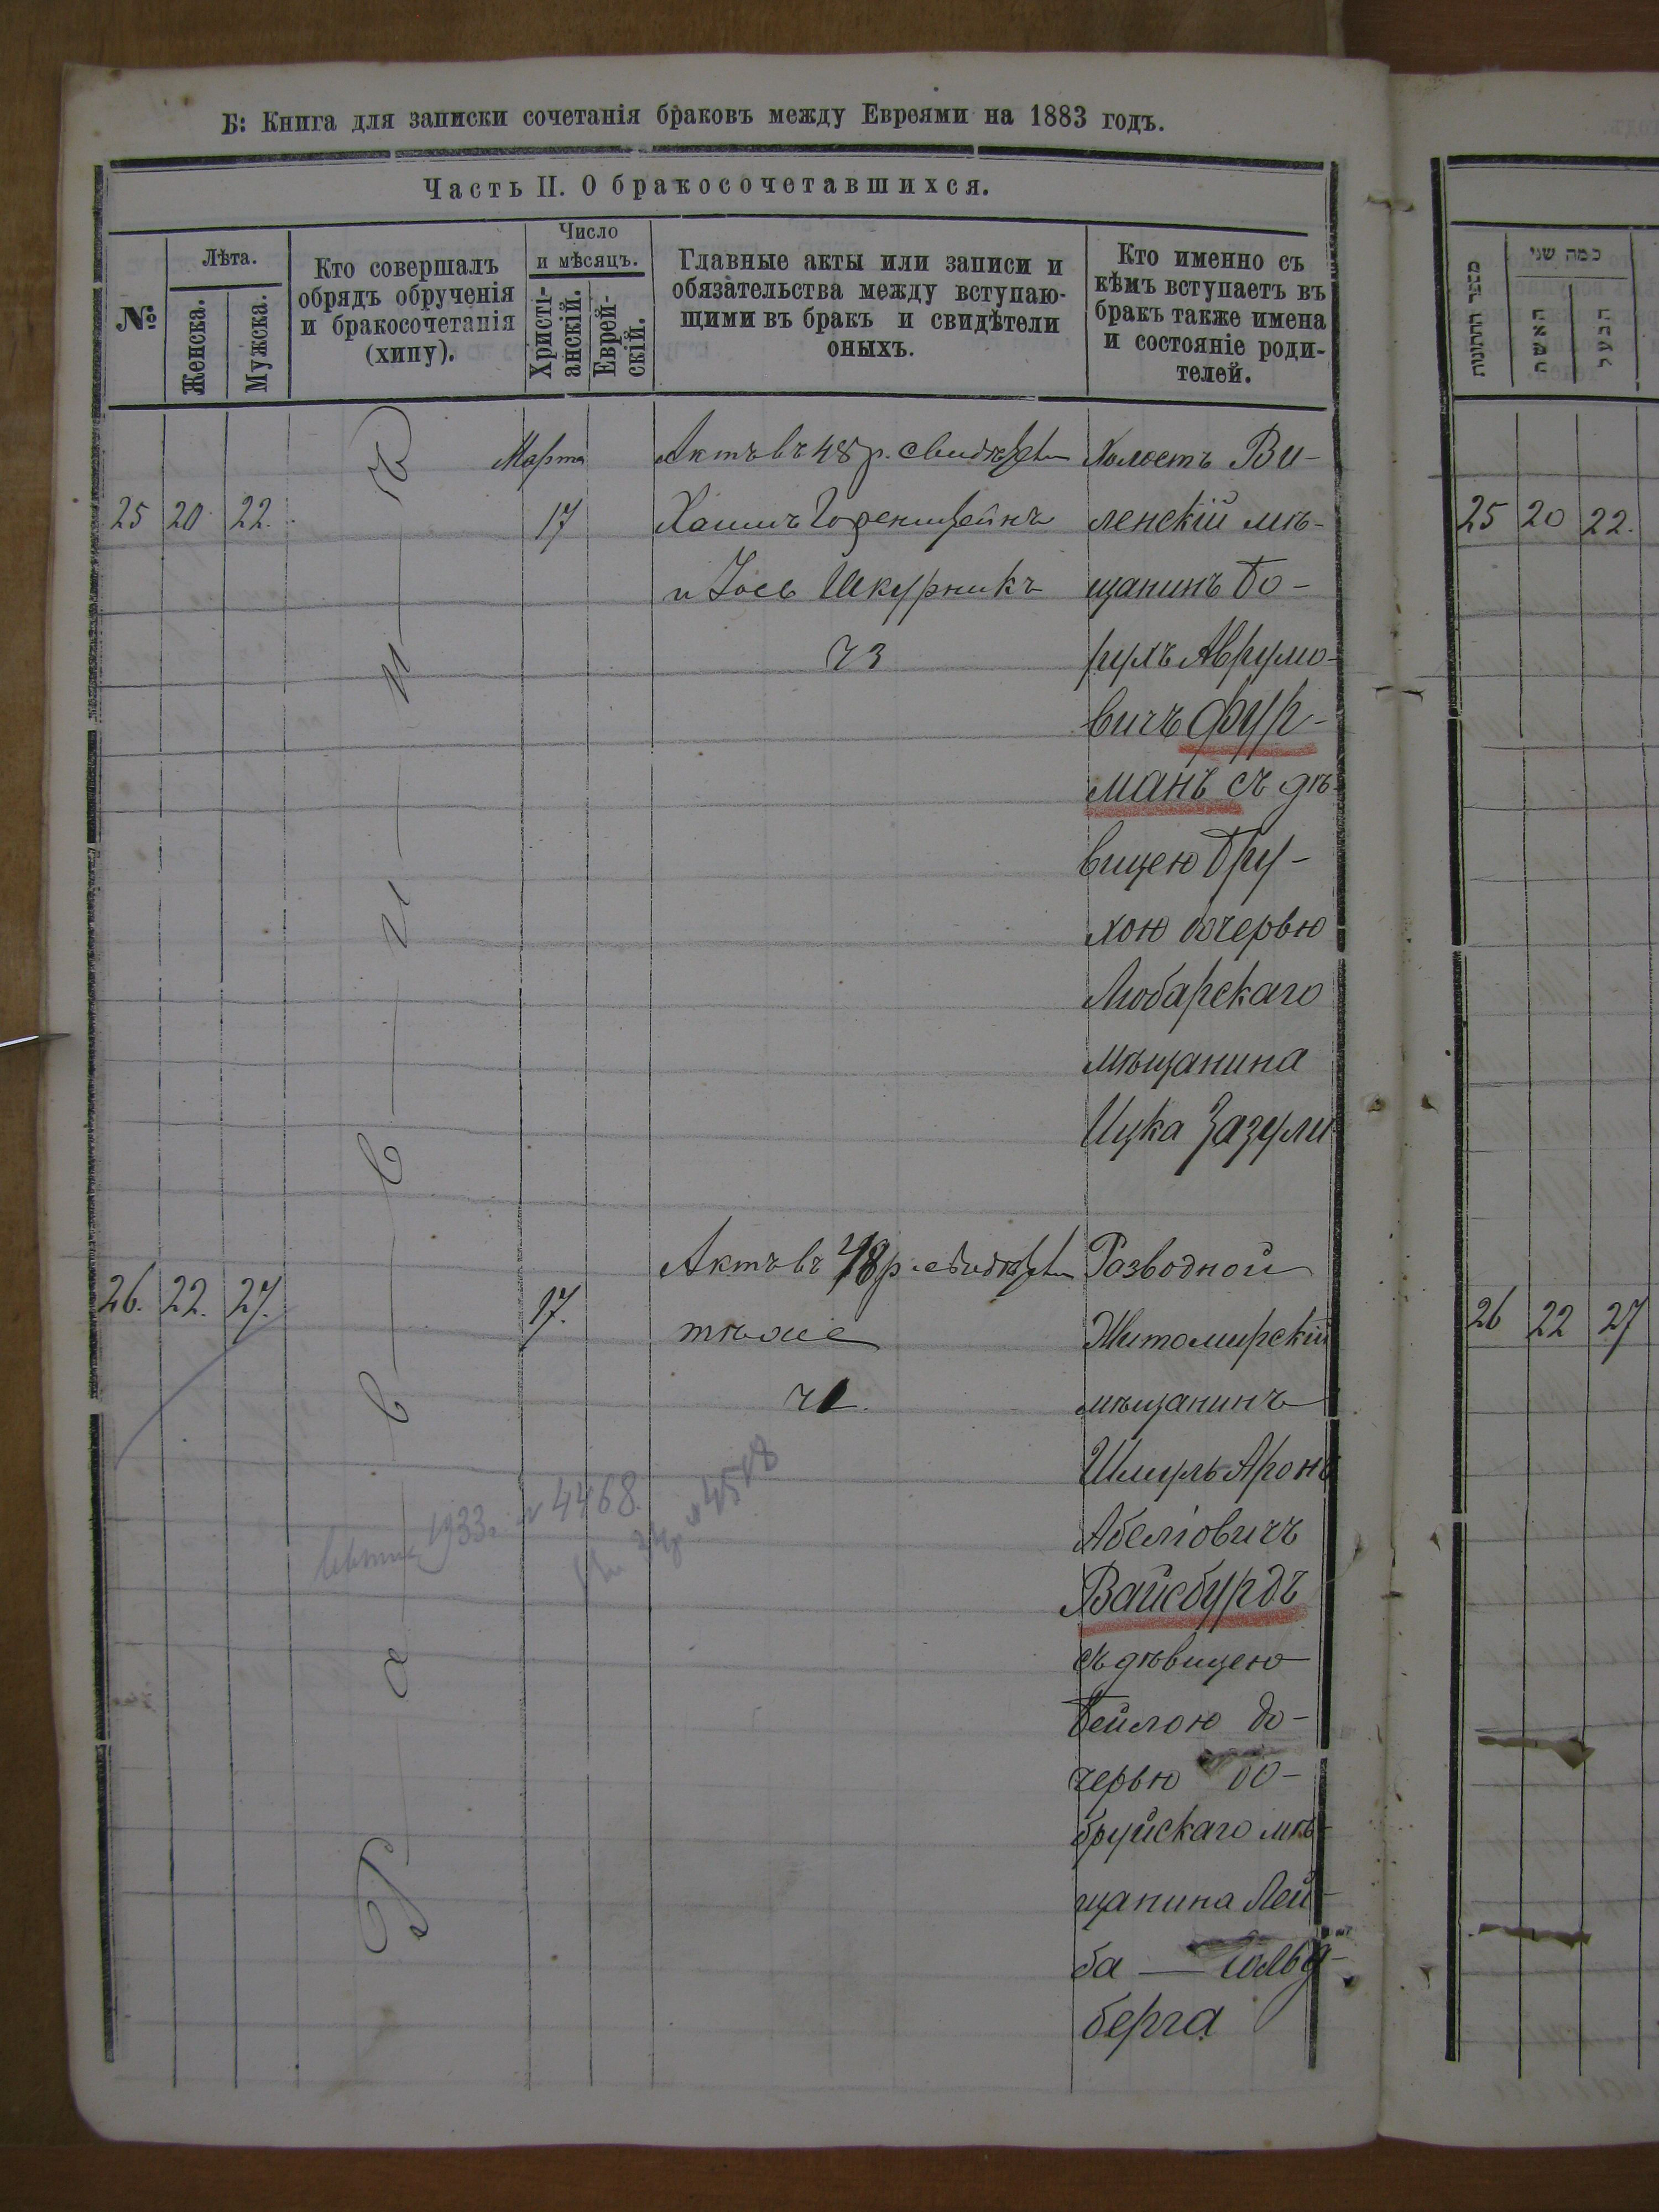 Б: Книга для записки сочетанія браковъ между Евреями на 1883 годъ.
Часть II. О бракосочетавшихся.
№
Лѣта.
Женска.
Мужска.
Кто совершалъ
обрядъ обрученія
и бракосочетанія
(хипу).
Число
и мѣсяцъ.
Христі-
анскій.
Еврей-
скій.
Главные акты или записи и
обязательства между вступаю-
щими въ бракъ и свидѣтели
оныхъ.
Кто именно съ
кѣмъ вступаетъ въ
бракъ также имена
и состояніе роди-
телей.
Раввинъ
Марта
25 20 22. 17
Актъ въ 48 р. свидѣтели
Хаимъ
и Іось Шкурникъ
ч3
Холостъ Ви-
ленскій мѣ-
щанинъ Бо-
рухъ Аврумо-
вичъ Фур-
манъ съ дѣ-
вицею Бру-
хою дочерью
Любарскаго
мѣщанина
Ицка Зазули
26. 22. 27. 17.
Актъ въ 48 р. свидѣтели
тѣже
ч1.
Разводной
Житомирскій
мѣщанинъ
Шмуль Аронъ
Абеліовичъ
Вайсбурдъ
съ дѣвицею
Бейлою до-
черью Бо-
бруйскаго мѣ-
щанина Лей-
ба — Гольд-
берга
1933г. N 4468.
N 4518
מספר החתונות
כמה שני
האשה
הבעל
25 20 22.
26 22 27